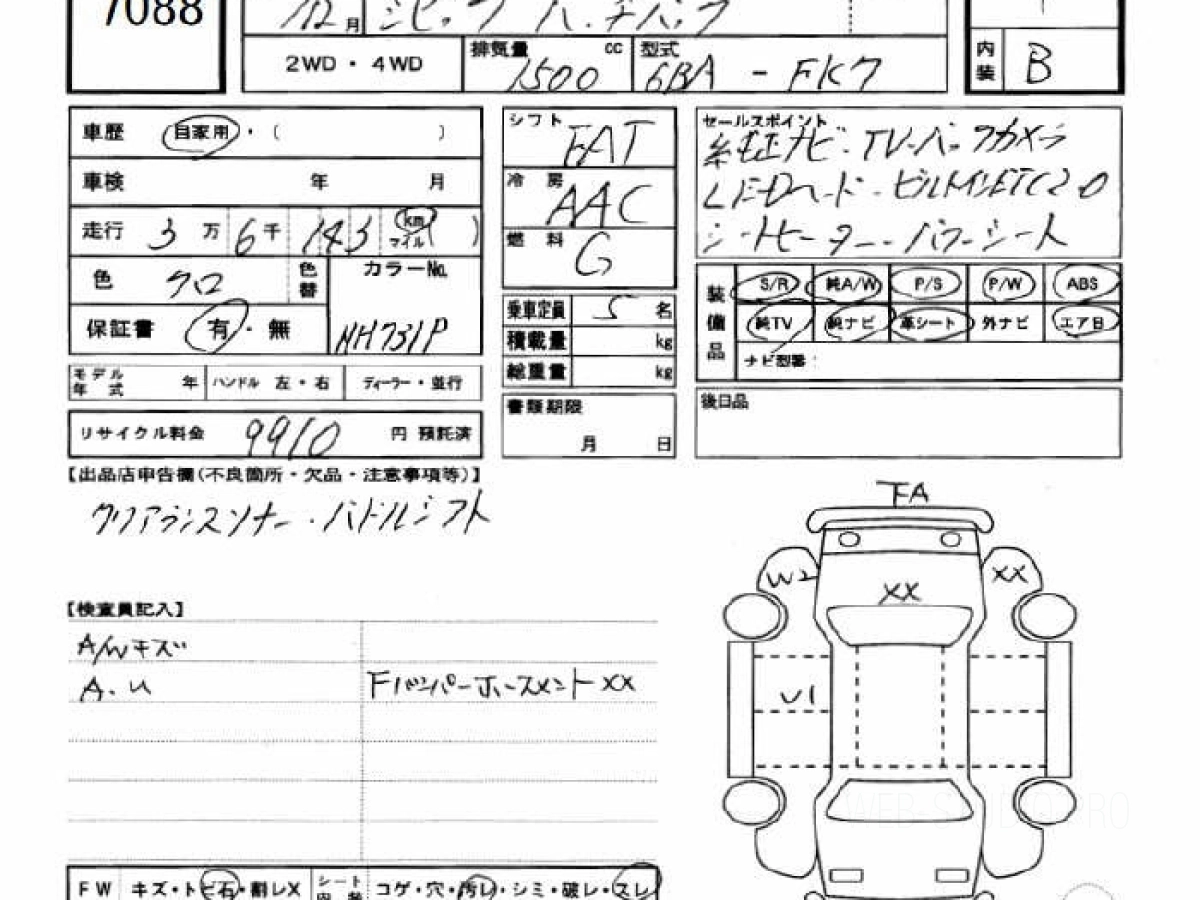 7088
12月 シビック ハッチバック
2WD・4WD 排気量 1500 cc 型式 6BA - FK7
内装 B
車歴 自家用・( )
車検 年 月
走行 3万6千143 km マイル( )
色 クロ 色替 カラーNo.
保証書 有・無 NH731P
モデル年式 年 ハンドル 左・右 ディーラー・並行
リサイクル料金 9910 円 預託済
シフト FAT
冷房 AAC
燃料 G
乗車定員 5 名
積載量 kg
総重量 kg
書類期限
月 日
セールスポイント
純正ナビ・TV・バックカメラ
LEDヘッド・ビルトインETC2.0
シートヒーター・パワーシート
装備品 S/R 純A/W P/S P/W ABS
純TV 純ナビ 革シート 外ナビ エアB
ナビ型番:
後日品
【出品店申告欄(不良箇所・欠品・注意事項等)】
クリアランスソナー・パドルシフト
【検査員記入】
A/Wキズ
A.U FバンパーホースメントXX
FA
W2 XX XX
U1
FW キズ・トビ石・割レX シート内装 コゲ・穴・汚レ・シミ・破レ・スレ
WEB-STUDIO.PRO